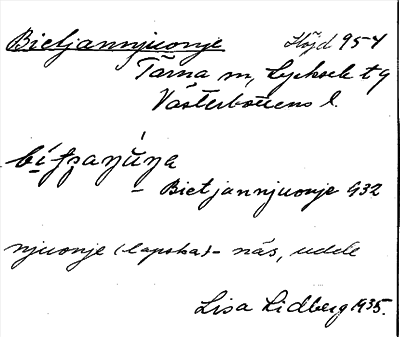 Bietjannjuonje Höjd 954
Tärna sn, Lycksele tg
Västerbottens l.
bi̯ʹt̯i̯aŋŭŋa
– Bietjannjuonje 932
njuonje (lapska) – näs, udde
Lisa Lidberg 1935.